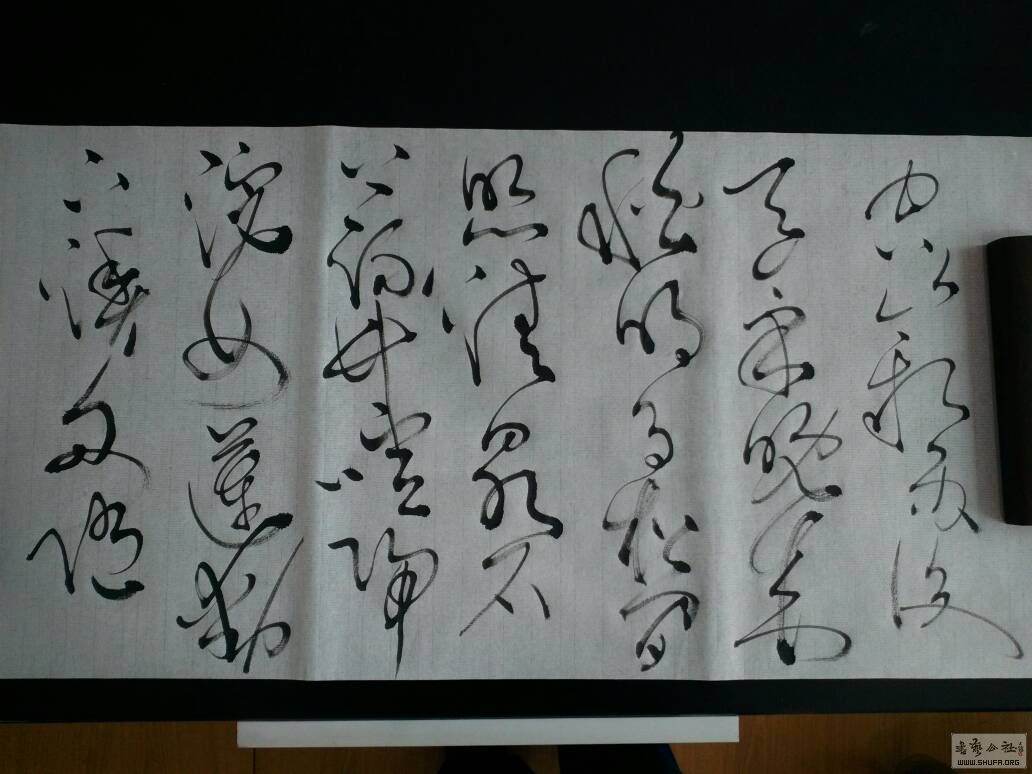 空山新雨後
天氣晚來
秋明月松間
照清泉石
上流竹喧歸
浣女蓮動
下漁舟隨
書藝公社
WWW.SHUFA.ORG